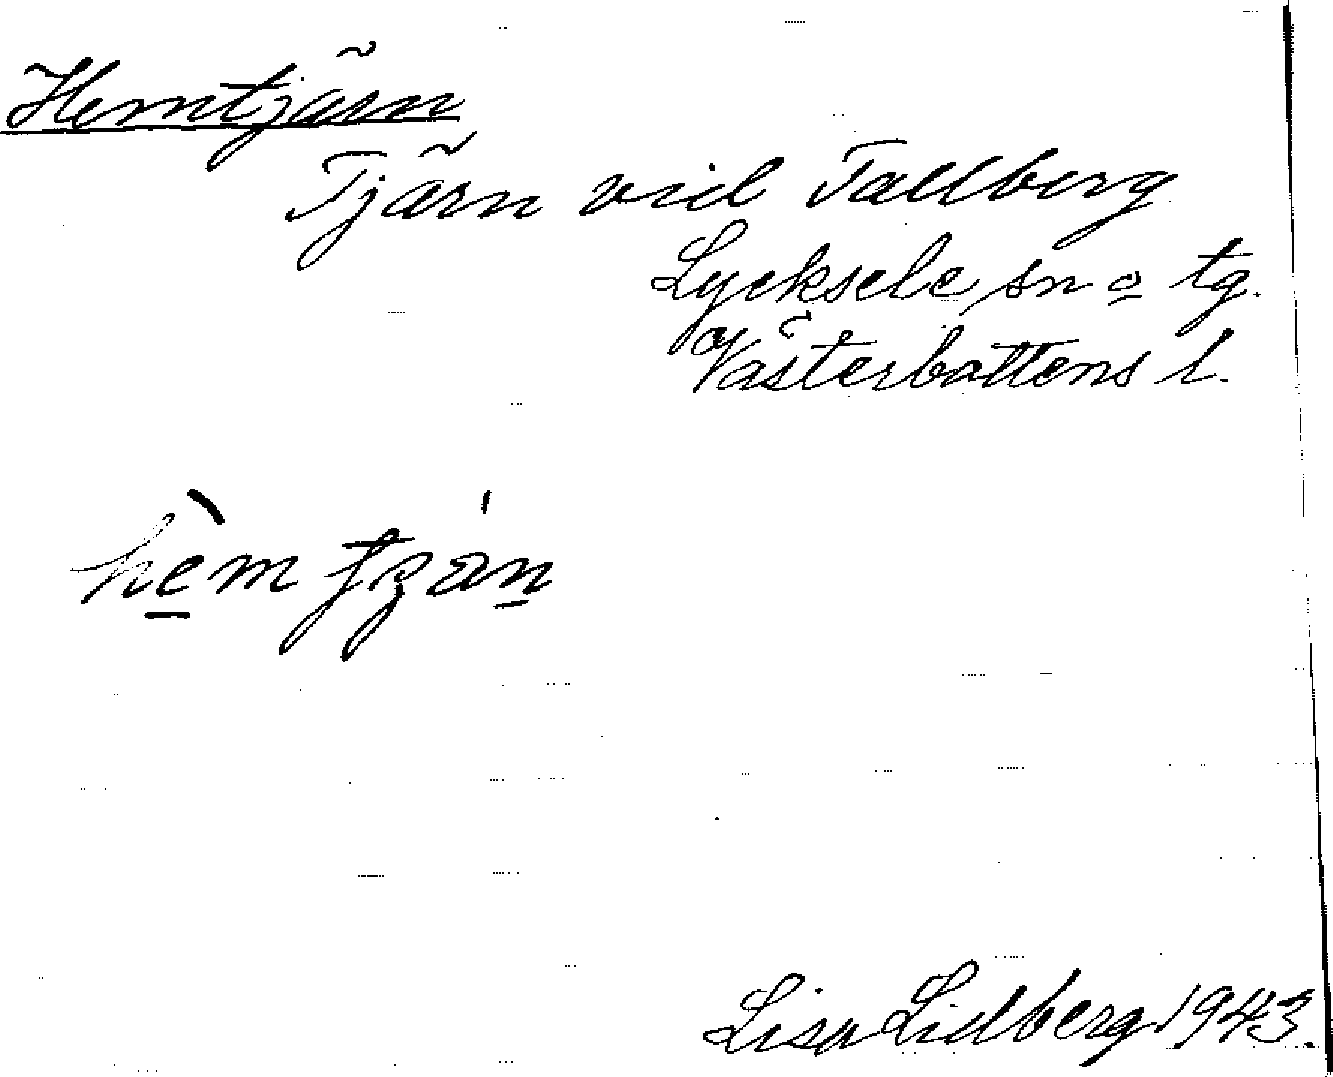 Hemtjärn
Tjärn vid Tallberg
Lycksele sn o tg.
Västerbottens l.
Lisa Lidberg 1943.